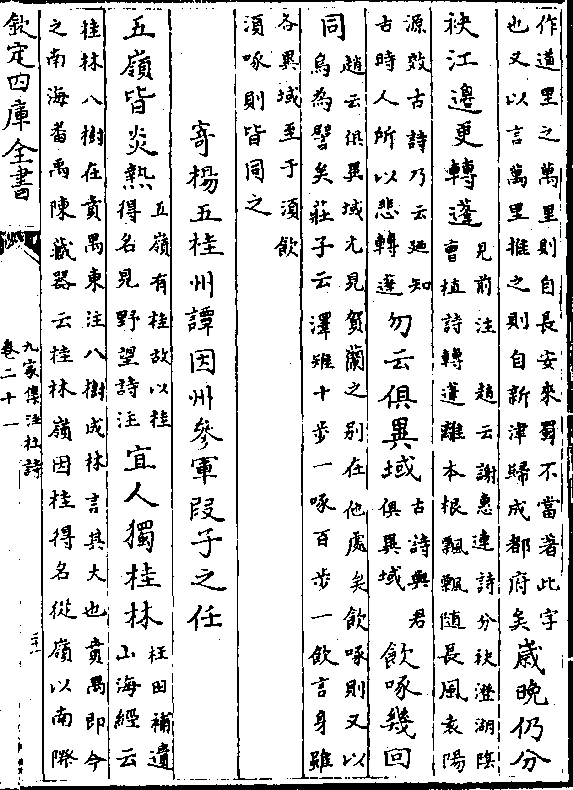 作道里之萬里則自長安來蜀不當著此字
也又以言萬里推之則自新津歸成都府矣
歲晚仍分
袂江邊更轉蓬
見前注 趙云謝惠連詩分袂澄湖陰
曹植詩轉蓬離本根飄飄隨長風袁陽
源效古詩乃云廻知
古時人所以悲轉蓬
勿云俱異域
古詩與君
俱異域
飲啄幾回
同
趙云俱異域尤見賀蘭之别在他處矣飲啄則又以
烏為譬矣莊子云澤雉十步一啄百步一飲言身雖
各異域至于須飲
須啄則皆同之
寄楊五桂州譚因州參軍段子之任
五嶺皆炎熱
五嶺有桂故以桂
得名見野望詩注
宜人獨桂林
杜田補遺
山海經云
桂林八樹在賁禺東注八樹成林言其大也賁禺即今
之南海番禺陳藏器云桂林嶺因桂得名從嶺以南際
欽定四庫全書
九家集注杜詩
卷二十一
二十一